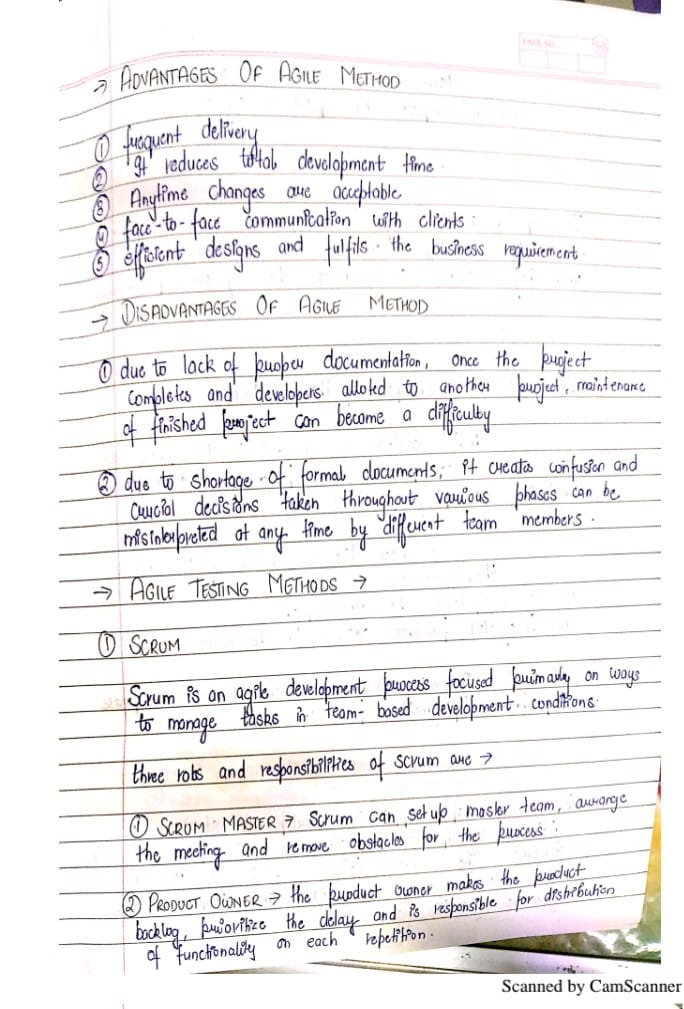 PAGE NO.
→ ADVANTAGES OF AGILE METHOD
① frequent delivery
② It reduces total development time
③ Anytime changes are acceptable
④ face-to-face communication with clients
⑤ efficient designs and fulfils the business requirement
→ DISADVANTAGES OF AGILE METHOD
① due to lack of proper documentation, once the project
completes and developers alloted to another project, maintenance
of finished project can become a difficulty
② due to shortage of formal documents, it creates confusion and
crucial decisions taken throughout various phases can be
misinterpreted at any time by different team members.
→ AGILE TESTING METHODS →
① SCRUM
Scrum is an agile development process focused primarily on ways
to manage tasks in team-based development conditions.
three roles and responsibilities of scrum are →
① SCRUM MASTER → Scrum can set up master team, arrange
the meeting and remove obstacles for the process.
② PRODUCT OWNER → the product owner makes the product
backlog, prioritize the delay and is responsible for distribution
of functionality on each repetition.
Scanned by CamScanner